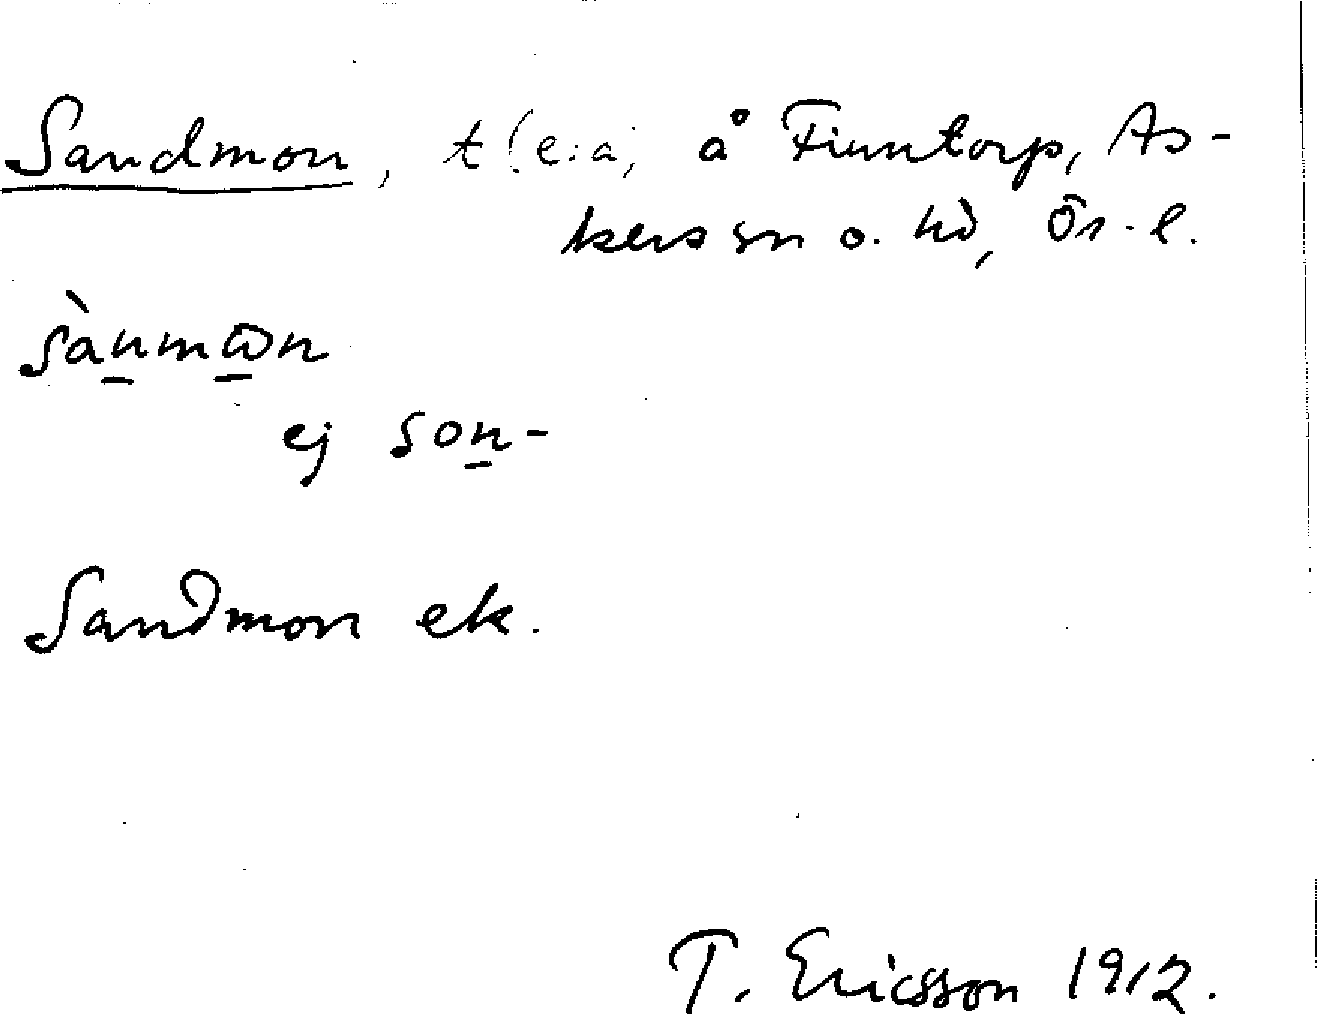 Sandmon, t (e: a, å Finntorp, As-
kers sn o. hd, Ör. l.
sànmωn
ej son-
Sandmon ek.
T. Ericsson 1912.